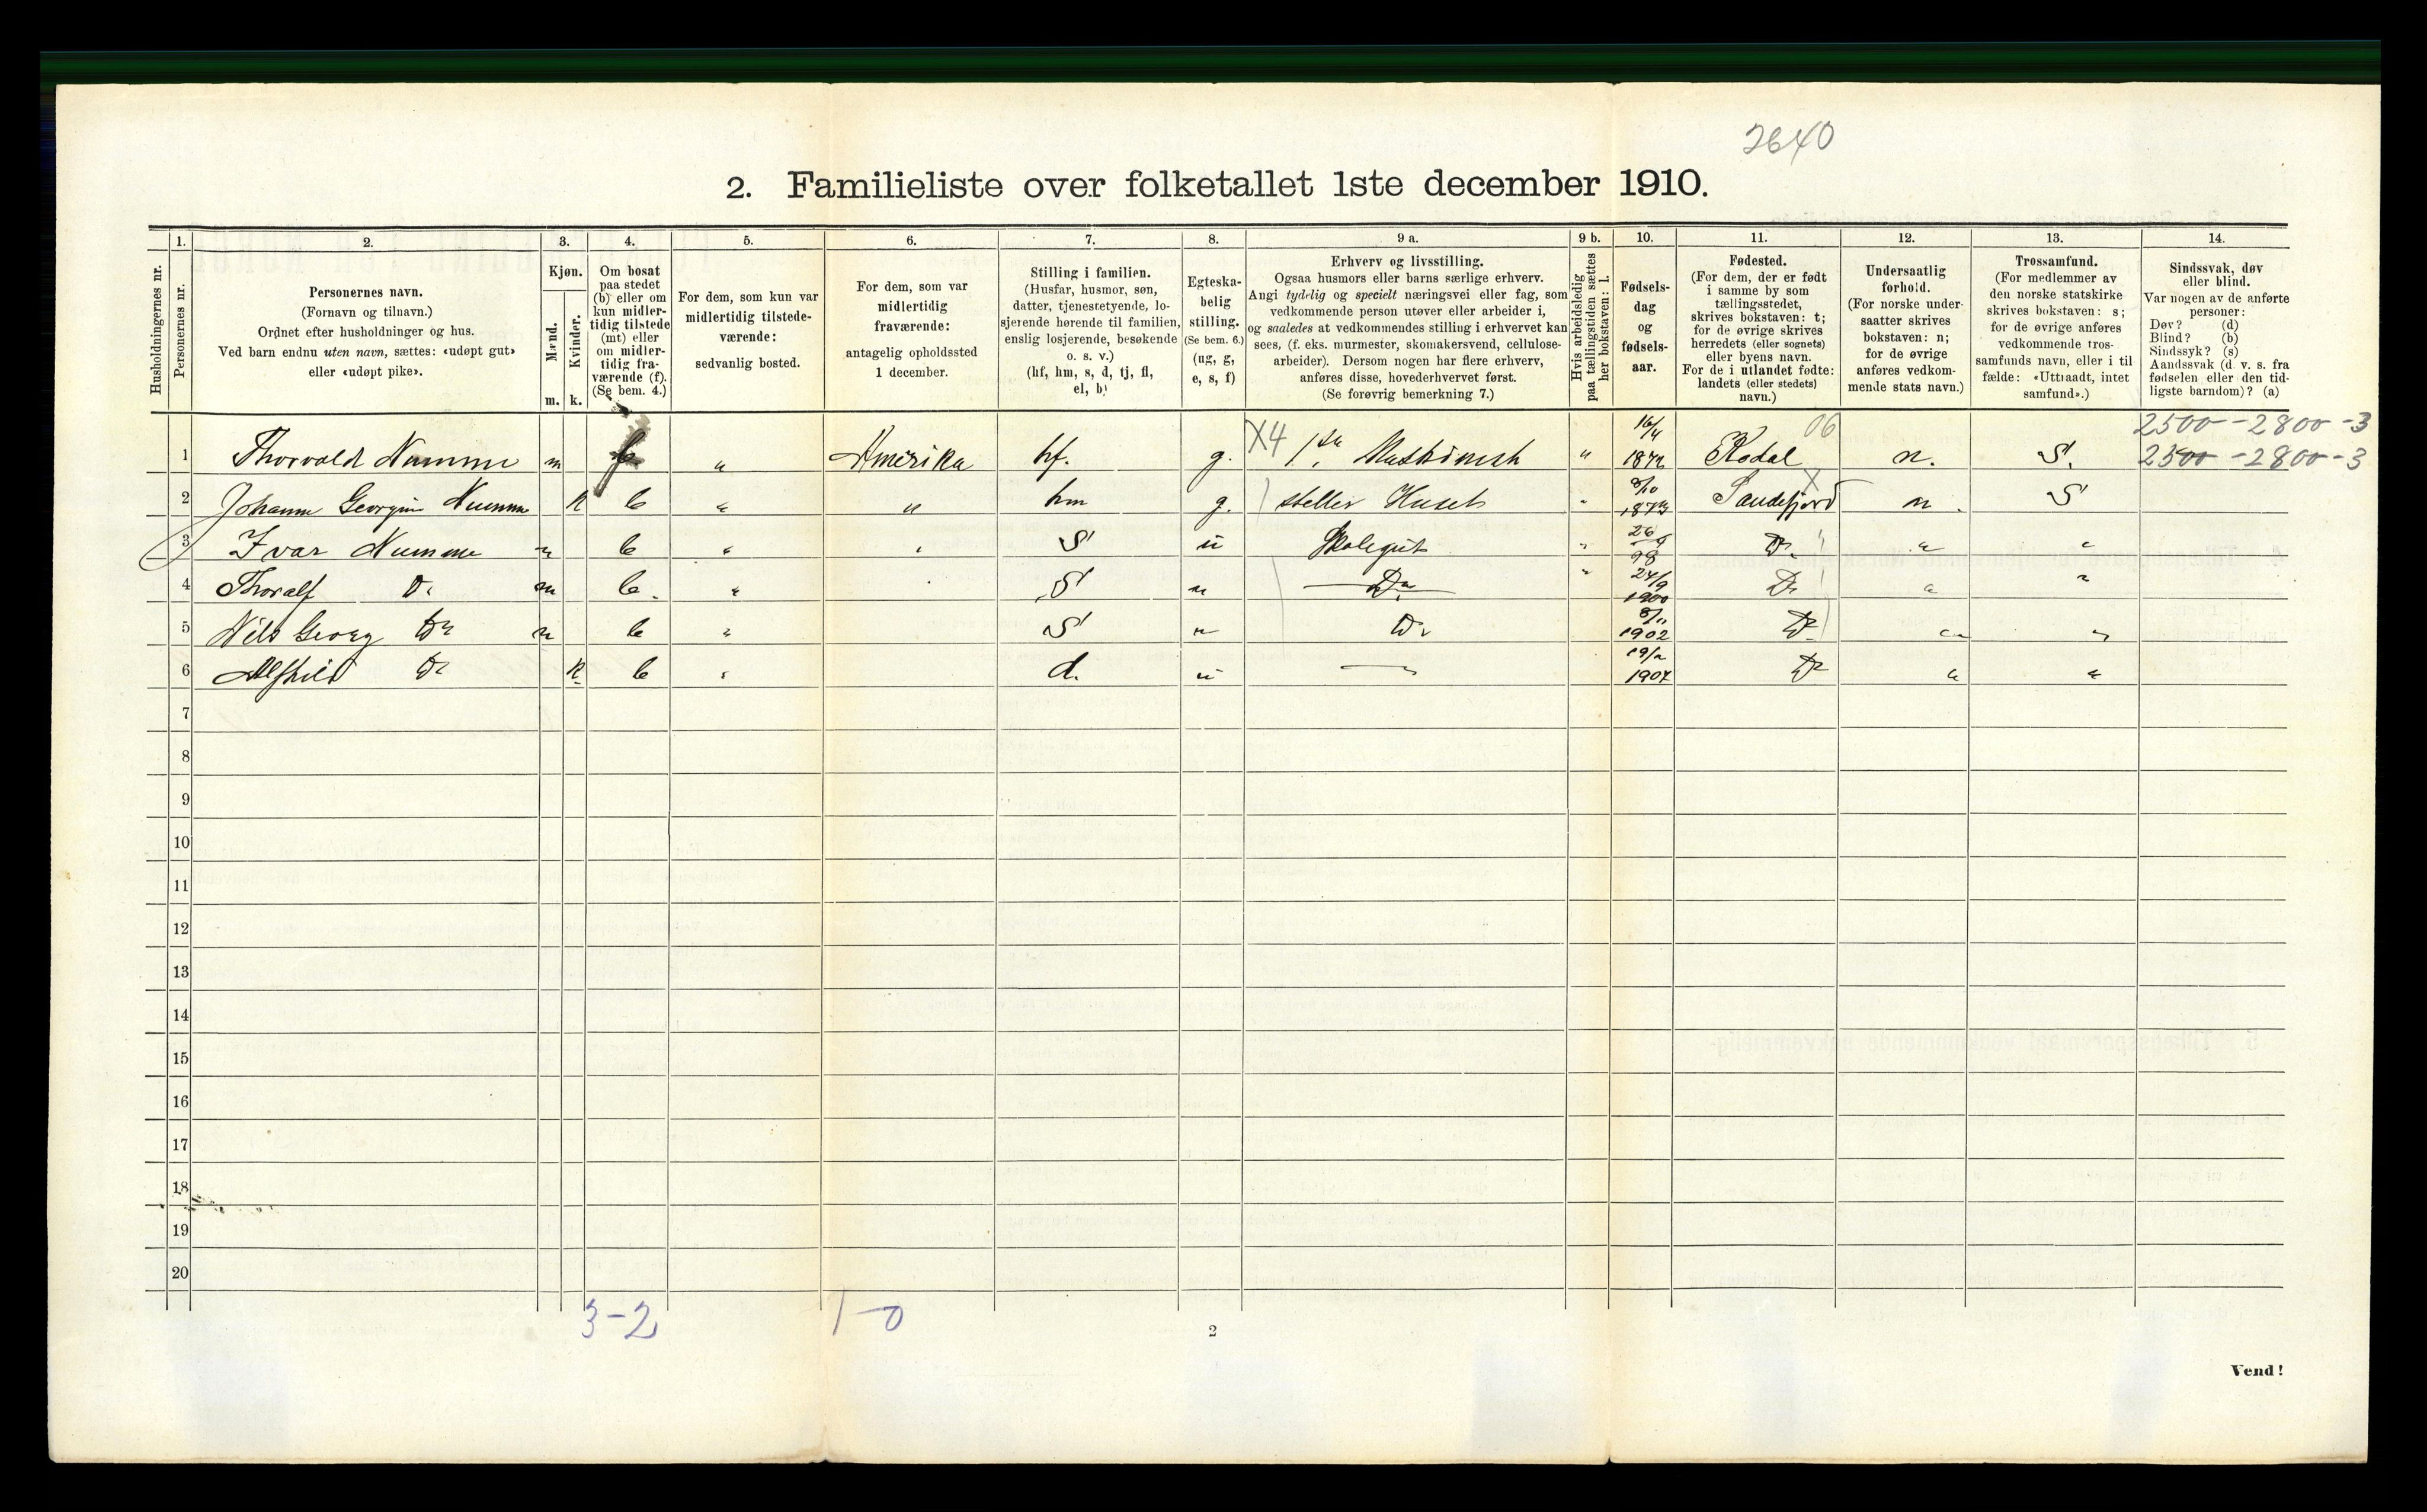 2640
2. Familieliste over folketallet 1ste december 1910.
Husholdningernes nr.
1.
Personernes nr.
2.
Personernes navn.
(Fornavn og tilnavn.)
Ordnet efter husholdninger og hus.
Ved barn endnu uten navn, sættes: «udøpt gut»
eller «udøpt pike».
3.
Kjøn.
Mænd.
Kvinder.
m.
k.
4.
Om bosat
paa stedet
(b) eller om
kun midler-
tidig tilstede
(mt) eller
om midler-
tidig fra-
værende (f).
(Se bem. 4.)
5.
For dem, som kun var
midlertidig tilstede-
værende:
sedvanlig bosted.
6.
For dem, som var
midlertidig
fraværende:
antagelig opholdssted
1 december.
7.
Stilling i familien.
(Husfar, husmor, søn,
datter, tjenestetyende, lo-
sjerende hørende til familien,
enslig losjerende, besøkende
o. s. v.)
(hf, hm, s, d, tj, fl,
el, b)
8.
Egteska-
belig
stilling.
(Se bem. 6.)
(ug, g,
e, s, f)
9 a.
Erhverv og livsstilling.
Ogsaa husmors eller barns særlige erhverv.
Angi tydelig og specielt næringsvei eller fag, som
vedkommende person utøver eller arbeider i,
og saaledes at vedkommendes stilling i erhvervet kan
sees, (f. eks. murmester, skomakersvend, cellulose-
arbeider). Dersom nogen har flere erhverv,
anføres disse, hovederhvervet først.
(Se forøvrig bemerkning 7.)
9 b.
Hvis arbeidsledig
paa tællingstiden sættes
her bokstaven: l.
10.
Fødsels-
dag
og
fødsels-
aar.
11.
Fødested.
(For dem, der er født
i samme by som
tællingsstedet,
skrives bokstaven: t;
for de øvrige skrives
herredets (eller sognets)
eller byens navn.
For de i utlandet fødte:
landets (eller stedets)
navn.)
12.
Undersaatlig
forhold.
(For norske under-
saatter skrives
bokstaven: n;
for de øvrige
anføres vedkom-
mende stats navn.)
13.
Trossamfund.
(For medlemmer av
den norske statskirke
skrives bokstaven: s;
for de øvrige anføres
vedkommende tros-
samfunds navn, eller i til
fælde: «Uttraadt, intet
samfund».)
14.
Sindssvak, døv
eller blind.
Var nogen av de anførte
personer:
Døv? (d)
Blind? (b)
Sindssyk? (s)
Aandssvak (d. v. s. fra
fødselen eller den tid-
ligste barndom)? (a)
06 2500-2800-3
1 Thorvald Numme m " Amerika hf. g. X4 1ste Maskinist " 16/4 Kodal n. S. 2500-2800-3
2 Johanne Georgine Numme k b " " hm g. steller Huset " 8/10 1873 Sandefjord n. S
3 Ivar Numme m b " " S u Skolegut " 26/9 98 Do " "
4 Thoralf Do m b. " S u Do " 24/9 1900 Do " "
5 Nils Georg Do m b " S u Do 8/11 1902 Do " "
6 Alfhild Do k b " d. u — 19/2 1907 Do " "
7
8
9
10
11
12
13
14
15
16
17
18
19
20
3-2 1-0
2
Vend!